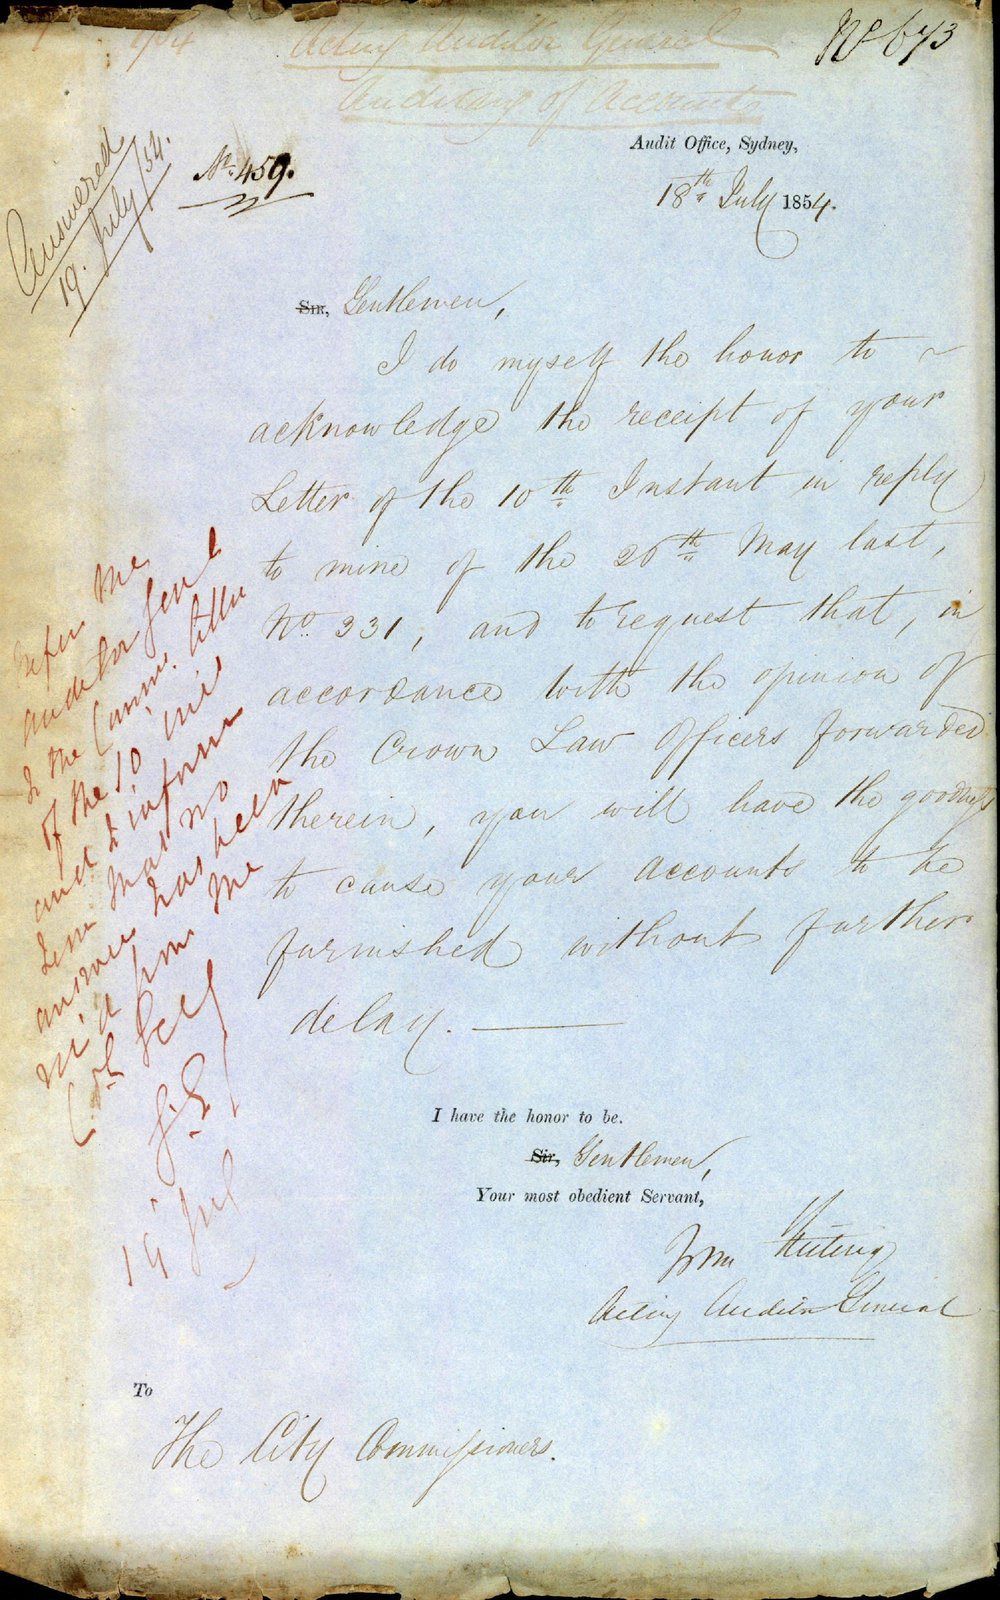 Acting Auditor General
Auditing of Accounts
No 673
Answered
19. July/54.
No. 459.
Audit Office, Sydney,
18th July 1854.
Sir, Gentlemen,
I do myself the honor to
acknowledge the receipt of your
Letter of the 10th Instant in reply
to mine of the 26th May last,
No. 331, and to request that, in
accordance with the opinion of
the Crown Law Officers forwarded
therein, you will have the goodness
to cause your Accounts to be
furnished without further
delay.
Refer the
Auditor Genl
to the Comms. letter
of the 10 inst
and to inform
him that no
answer has been
rec'd from the
Col Secy
19 Jul
I have the honor to be.
Sir, Gentlemen,
Your most obedient Servant,
Wm
Acting Auditor General
To
The City Commissioners.